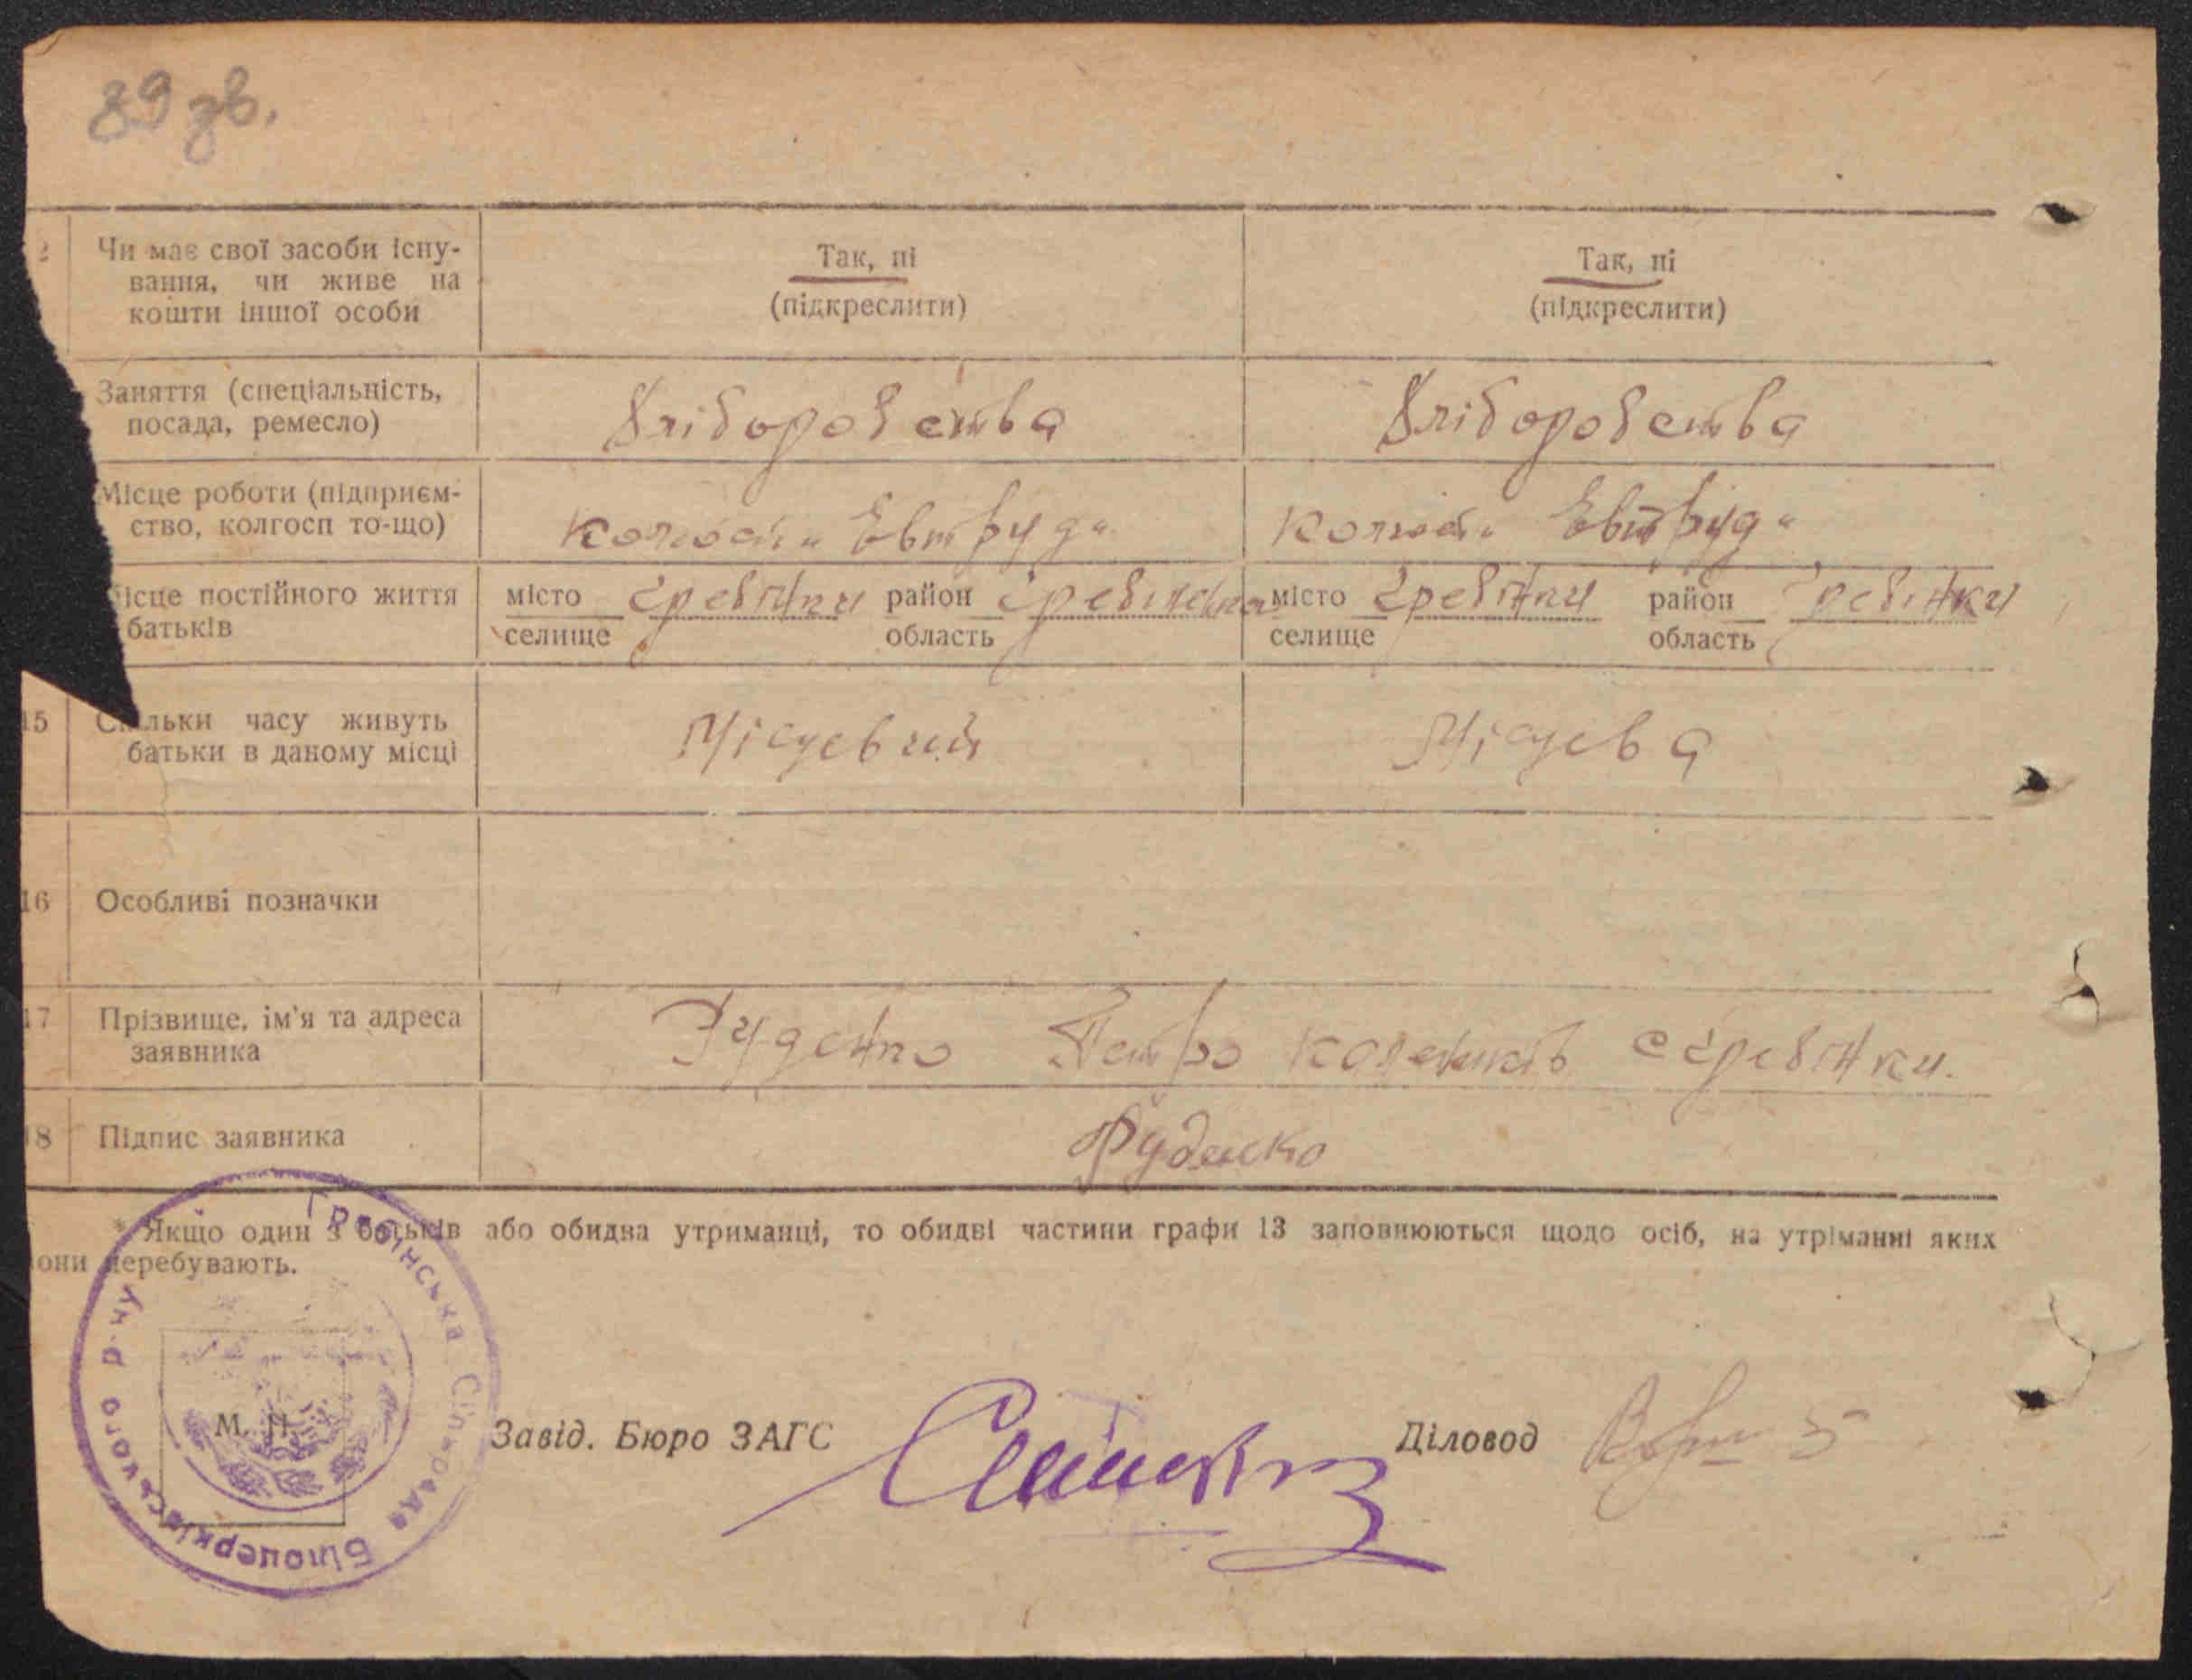 89 зв.
2 Чи має свої засоби існу- Так, ні Так, ні
вання, чи живе на
кошти іншої особи (підкреслити) (підкреслити)
Заняття (спеціальність, Хліборобства Хліборобства
посада, ремесло)
Місце роботи (підприєм-
ство, колгосп то-що)
ісце постійного життя місто Гребінки район Гребінки місто Гребінки район Гребінки
батьків селище область селище область
15 Скільки часу живуть Місцевий Місцева
батьки в даному місці
16 Особливі позначки
17 Прізвище, ім'я та адреса Руденко Петро с Гребінки.
заявника
18 Підпис заявника Руденко
* Якщо один з батьків або обидва утриманці, то обидві частини графи 13 заповнюються щодо осіб, на утріманні яких
вони перебувають.
Гребінська Сільрада Білоцерківського р-ну
М. П.
Завід. Бюро ЗАГС Діловод